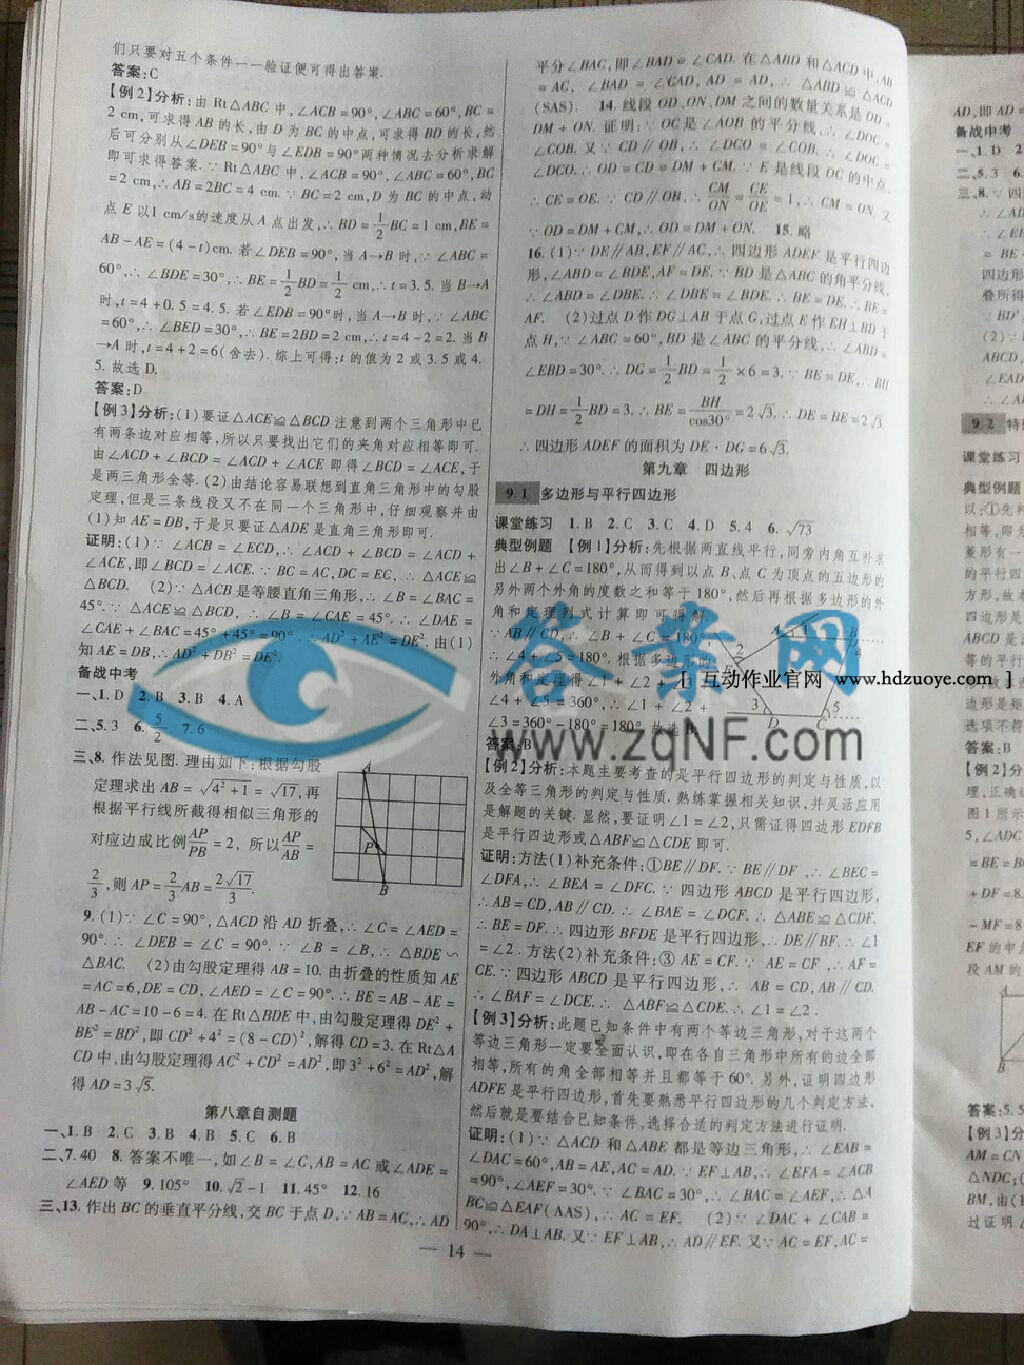 们只要对五个条件一一验证便可得出答案.
答案:C
【例2】分析:由 Rt△ABC 中,∠ACB=90°,∠ABC=60°,BC=
2 cm,可求得 AB 的长,由 D 为 BC 的中点,可求得 BD 的长,然
后可分别从∠DEB=90°与∠EDB=90°两种情况去分析求解
即可求得答案.∵Rt△ABC 中,∠ACB=90°,∠ABC=60°,BC
=2 cm,∴AB=2BC=4 cm.∵BC=2 cm,D 为 BC 的中点,动
点 E 以1 cm/s的速度从 A 点出发,∴BD=1/2BC=1 cm,BE=
AB-AE=(4-t)cm.若∠DEB=90°,当 A→B 时,∵∠ABC=
60°,∴∠BDE=30°,∴BE=1/2BD=1/2 cm,∴t=3.5.当 B→A
时,t=4+0.5=4.5.若∠EDB=90°时,当 A→B 时,∵∠ABC
=60°,∴∠BED=30°,∴BE=2BD=2 cm,∴t=4-2=2.当 B
→A 时,t=4+2=6(舍去).综上可得:t 的值为 2 或 3.5 或 4.
5.故选 D.
答案:D
【例3】分析:(1)要证△ACE≌△BCD 注意到两个三角形中已
有两条边对应相等,所以只要找出它们的夹角对应相等即可.
由∠ACD+∠BCD=∠ACD+∠ACE 即得∠BCD=∠ACE,于
是两三角形全等.(2)由结论容易联想到直角三角形中的勾股
定理,但是三条线段又不在同一个三角形中,仔细观察并由
(1)知 AE=DB,于是只要证△ADE 是直角三角形即可.
证明:(1)∵∠ACB=∠ECD,∴∠ACD+∠BCD=∠ACD+
∠ACE,即∠BCD=∠ACE.∵BC=AC,DC=EC,∴△ACE≌
△BCD. (2)∵△ACB 是等腰直角三角形,∴∠B=∠BAC=
45°.∵△ACE≌△BCD,∴∠B=∠CAE=45°.∴∠DAE=
∠CAE+∠BAC=45°+45°=90°.∴AD²+AE²=DE².由(1)
知 AE=DB,∴AD²+DB²=DE².
备战中考
一、1.D 2.B 3.B 4.A
二、5.3 6.5/2 7.6
三、8.作法见图.理由如下:根据勾股
定理求出 AB=√(4²+1)=√17,再
根据平行线所截得相似三角形的
对应边成比例AP/PB=2,所以AP/AB=
2/3,则 AP=2/3AB=2√17/3.
A
P
B
9.(1)∵∠C=90°,△ACD 沿 AD 折叠,∴∠C=∠AED=
90°.∴∠DEB=∠C=90°.∵∠B=∠B,∴△BDE∽
△BAC. (2)由勾股定理得 AB=10.由折叠的性质知 AE
=AC=6,DE=CD,∠AED=∠C=90°.∴BE=AB-AE=
AB-AC=10-6=4.在 Rt△BDE 中,由勾股定理得 DE²+
BE²=BD²,即 CD²+4²=(8-CD)²,解得 CD=3.在 Rt△A
CD 中,由勾股定理得 AC²+CD²=AD²,即 3²+6²=AD²,解
得 AD=3√5.
第八章自测题
一、1.B 2.C 3.B 4.B 5.C 6.B
二、7.40 8.答案不唯一,如∠B=∠C,AB=AC 或∠ADE=
∠AED 等 9.105° 10.√2-1 11.45° 12.16
三、13.作出 BC 的垂直平分线,交 BC 于点 D,∵AB=AC,∴AD
平分∠BAC,即∠BAD=∠CAD.在△ABD 和△ACD 中,AB
=AC,∠BAD=∠CAD,AD=AD,∴△ABD≌△ACD
(SAS). 14.线段 OD、ON、DM 之间的数量关系是 OD=
DM+ON.证明:∵OC 是∠AOB 的平分线,∴∠DOC=
∠COB.又∵CD∥OB,∴∠DCO=∠COB.∴∠DOC=
∠DCO.∴OD=CD=DM+CM.∵E 是线段 OC 的中点,
∴CE=OE.∵CD∥OB,∴CM/ON=CE/OE=1,∴CM=ON.又
∵OD=DM+CM,∴OD=DM+ON. 15.略
16.(1)∵DE∥AB,EF∥AC,∴四边形 ADEF 是平行四边
形,∠ABD=∠BDE,AF=DE.∵BD 是△ABC 的角平分线,
∴∠ABD=∠DBE.∴∠DBE=∠BDE.∴BE=DE.∴BE=
AF. (2)过点 D 作 DG⊥AB 于点 G,过点 E 作 EH⊥BD 于
点 H,∵∠ABC=60°,BD 是∠ABC 的平分线,∴∠ABD=
∠EBD=30°.∴DG=1/2BD=1/2×6=3.∵BE=DE,∴BH
=DH=1/2BD=3.∴BE=BH/cos30°=2√3.∴DE=BE=2√3.
∴四边形 ADEF 的面积为 DE·DG=6√3.
第九章 四边形
9.1 多边形与平行四边形
课堂练习 1.B 2.C 3.C 4.D 5.4 6.√73
典型例题 【例1】分析:先根据两直线平行,同旁内角互补求
出∠B+∠C=180°,从而得到以点 B、点 C 为顶点的五边形的
另外两个外角的度数之和等于 180°,然后再根据多边形的外
角和定理列式计算即可得解.
∵AB∥CD,∴∠B+∠C=180°,
∴∠4+∠5=180°.根据多边形的
外角和定理得∠1+∠2+∠3+
∠4+∠5=360°,∴∠1+∠2+
∠3=360°-180°=180°.故选 B.
答案:B
2
E
3
D
C
5
4
【例2】分析:本题主要考查的是平行四边形的判定与性质,以
及全等三角形的判定与性质.熟练掌握相关知识,并灵活应用
是解题的关键.显然,要证明∠1=∠2,只需证得四边形 EDFB
是平行四边形或△ABF≌△CDE 即可.
证明:方法(1)补充条件:①BE∥DF.∵BE∥DF,∴∠BEC=
∠DFA,∴∠BEA=∠DFC.∵四边形 ABCD 是平行四边形,
∴AB=CD,AB∥CD.∴∠BAE=∠DCF.∴△ABE≌△CDF.
∴BE=DF.∴四边形 BFDE 是平行四边形,∴DE∥BF.∴∠1
=∠2.方法(2)补充条件:③AE=CF.∵AE=CF,∴AF=
CE.∵四边形 ABCD 是平行四边形,∴AB=CD,AB∥CD.
∴∠BAF=∠DCE.∴△ABF≌△CDE.∴∠1=∠2.
【例3】分析:此题已知条件中有两个等边三角形,对于这两个
等边三角形一定要全面认识,即在各自三角形中所有的边全部
相等,所有的角全部相等并且都等于 60°.另外,证明四边形
ADFE 是平行四边形,首先要熟悉平行四边形的几个判定方法,
然后就是要结合已知条件,选择合适的判定方法进行证明.
证明:(1)∵△ACD 和△ABE 都是等边三角形,∴∠EAB=
∠DAC=60°,AB=AE,AC=AD.∵EF⊥AB,∴∠EFA=∠ACB
=90°,∠AEF=30°.∵∠BAC=30°,∴∠BAC=∠AEF,∴△A
BC≌△EAF(AAS),∴AC=EF. (2)∵∠DAC+∠CAB=
90°,∴DA⊥AB.又∵EF⊥AB,∴AD∥EF.又∵AC=EF,AC=
— 14 —
答案网
www.zqNF.com
[ 互动作业官网 www.hdzuoye.com ]
AD,即 AD=
备战中考
一、1.D
二、5.3 6.
三、8.∵四
9.2 特
课堂练习
典型例题
答案:B
【例2】分
答案:5.5
【例3】分
AM=CN
△NDC;(
BM,由(1
过证明